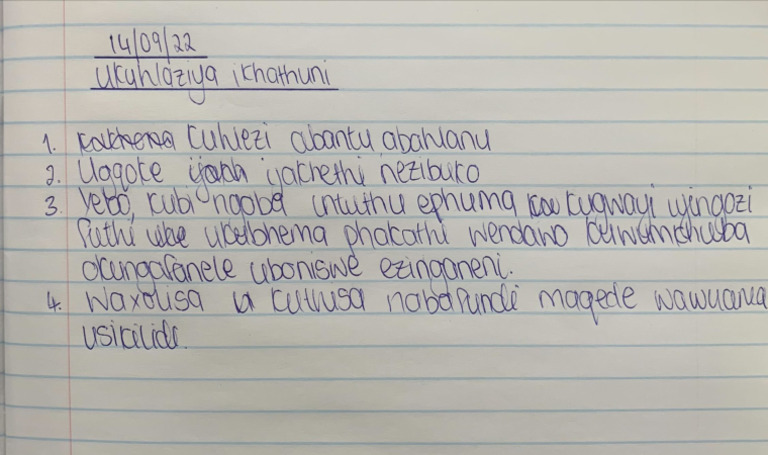 14/09/22
Ukuhlaziya ikhathuni
1. kuhlezi abantu abahlanu
2. Ugqoke ijakhethi nezibuko
3. Yebo, kubi ngoba intuthu ephuma kugwayi iyingozi
futhi ube ukubhema phakathi wendawo
okungafanele uboniswe ezinganeni.
4. Waxolisa kuthisa nabafundi maqede wawucima
usikilidi.